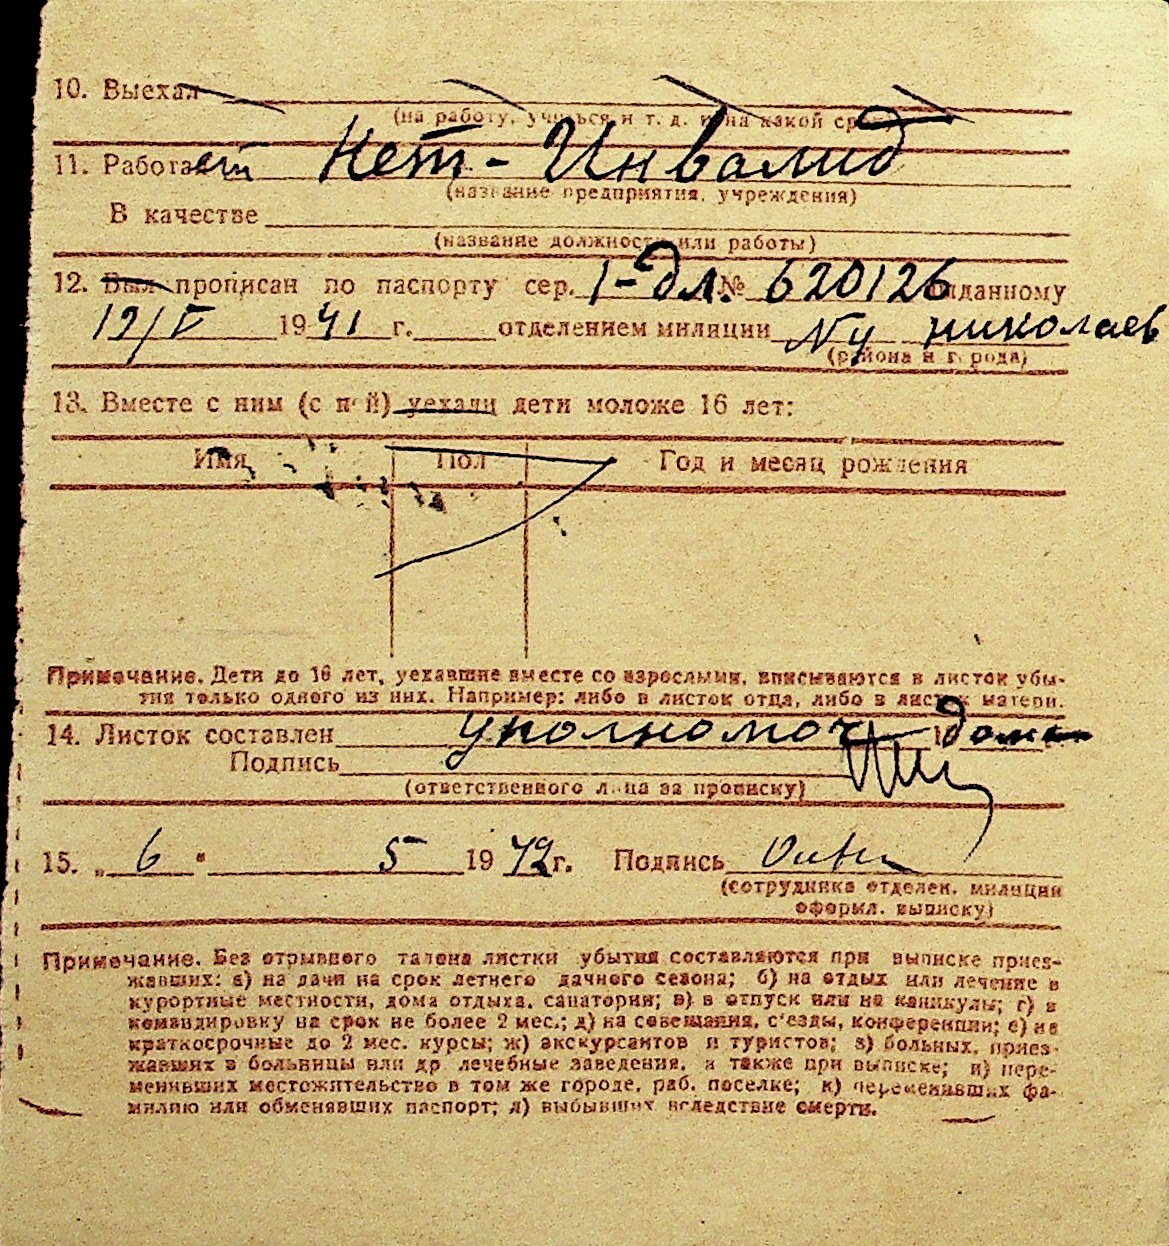 10. Выехал
(на работу, учиться и т. д. и на какой срок)
11. Работает Нет - Инвалид
(название предприятия, учреждения)
В качестве
(название должности или работы)
12. Был прописан по паспорту сер. 1-дл. № 620126 выданному
12/V 1941 г. отделением милиции Николаев
(района и города)
13. Вместе с ним (с ней) уехали дети моложе 16 лет:
Имя Пол Год и месяц рождения
Примечание. Дети до 16 лет, уехавшие вместе со взрослыми, вписываются в листок убы-
тия только одного из них. Например: либо в листок отца, либо в листок матери.
14. Листок составлен уполномоч дома
Подпись
(ответственного лица за прописку)
15. „ 6 " 5 1942 г. Подпись
(сотрудника отделен. милиции
оформл. выписку)
Примечание. Без отрывного талона листки убытия составляются при выписке приез-
жавших: а) на дачи на срок летнего дачного сезона; б) на отдых или лечение в
курортные местности, дома отдыха, санатории; в) в отпуск или на каникулы; г) в
командировку на срок не более 2 мес.; д) на совещания, с'езды, конференции; е) на
краткосрочные до 2 мес. курсы; ж) экскурсантов и туристов; з) больных, приез-
жавших в больницы или др лечебные заведения, а также при выписке; и) пере-
менивших местожительство в том же городе, раб. поселке; к) переменивших фа-
милию или обменявших паспорт; л) выбывших вследствие смерти.